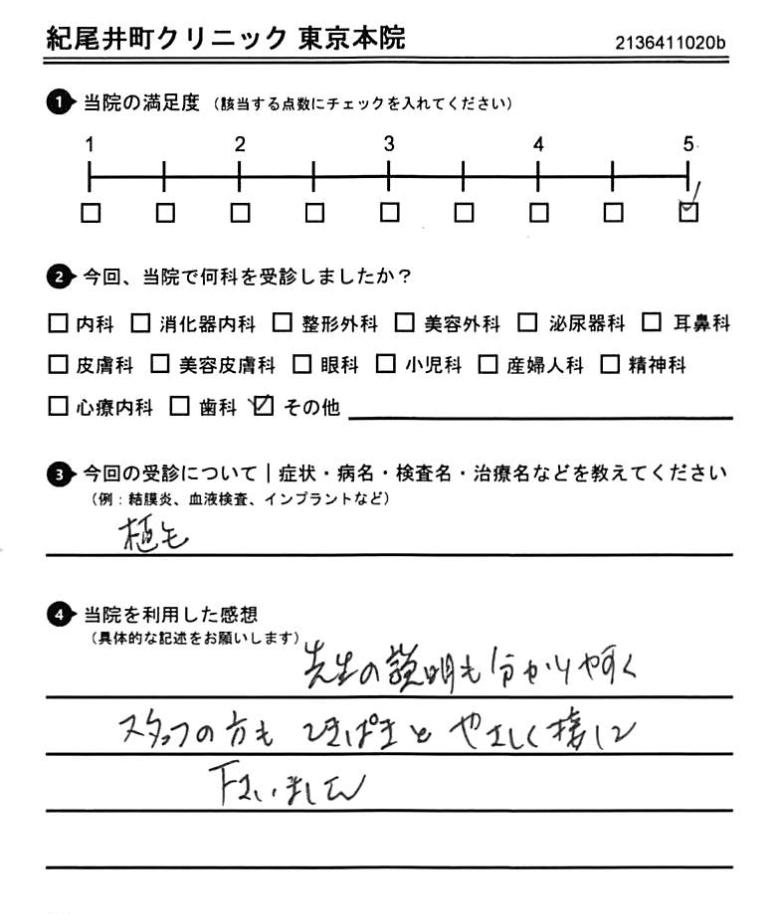 紀尾井町クリニック 東京本院
2136411020b
1 当院の満足度 (該当する点数にチェックを入れてください)
1 2 3 4 5
2 今回、当院で何科を受診しましたか?
□ 内科 □ 消化器内科 □ 整形外科 □ 美容外科 □ 泌尿器科 □ 耳鼻科
□ 皮膚科 □ 美容皮膚科 □ 眼科 □ 小児科 □ 産婦人科 □ 精神科
□ 心療内科 □ 歯科 ☑ その他
3 今回の受診について|症状・病名・検査名・治療名などを教えてください
(例:結膜炎、血液検査、インプラントなど)
植毛
4 当院を利用した感想
(具体的な記述をお願いします)
先生の説明も分かりやすく
スタッフの方も てきぱきと やさしく接して
下さいました